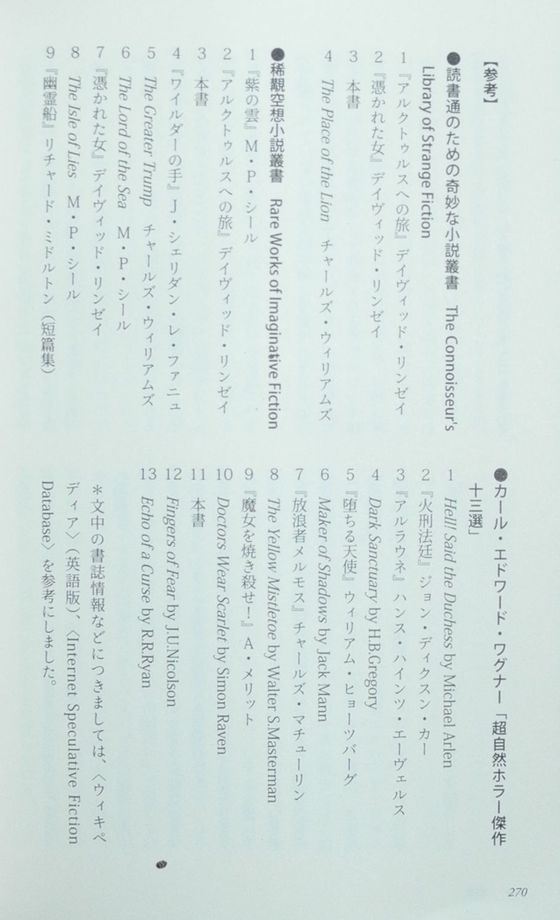 【参考】
●読書通のための奇妙な小説叢書　The Connoisseur's
Library of Strange Fiction
1『アルクトゥルスへの旅』デイヴィッド・リンゼイ
2『憑かれた女』デイヴィッド・リンゼイ
3　本書
4　The Place of the Lion　チャールズ・ウィリアムズ
●稀覯空想小説叢書　Rare Works of Imaginative Fiction
1『紫の雲』M・P・シール
2『アルクトゥルスへの旅』デイヴィッド・リンゼイ
3　本書
4『ワイルダーの手』J・シェリダン・レ・ファニュ
5　The Greater Trump　チャールズ・ウィリアムズ
6　The Lord of the Sea　M・P・シール
7『憑かれた女』デイヴィッド・リンゼイ
8　The Isle of Lies　M・P・シール
9『幽霊船』リチャード・ミドルトン（短篇集）
●カール・エドワード・ワグナー「超自然ホラー傑作
十三選」
1　Hell! Said the Duchess by Michael Arlen
2『火刑法廷』ジョン・ディクスン・カー
3『アルラウネ』ハンス・ハインツ・エーヴェルス
4　Dark Sanctuary by H.B.Gregory
5『堕ちる天使』ウィリアム・ヒョーツバーグ
6　Maker of Shadows by Jack Mann
7『放浪者メルモス』チャールズ・マチューリン
8　The Yellow Mistletoe by Walter S.Masterman
9『魔女を焼き殺せ！』A・メリット
10　Doctors Wear Scarlet by Simon Raven
11　本書
12　Fingers of Fear by J.U.Nicolson
13　Echo of a Curse by R.R.Ryan
＊文中の書誌情報などにつきましては、〈ウィキペ
ディア〉（英語版）、〈Internet Speculative Fiction
Database〉を参考にしました。
270